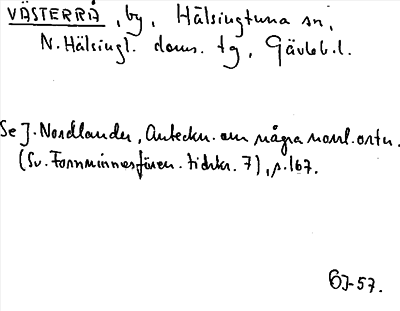 VÄSTERRÅ, by, Hälsingtuna sn,
N. Hälsingl. doms. tg, Gävleb. l.
Se J. Nordlander, Anteckn. om några norrl. ortn.
(Sv. Fornminnesfören. tidskr. 7), s. 167.
BJ-57.